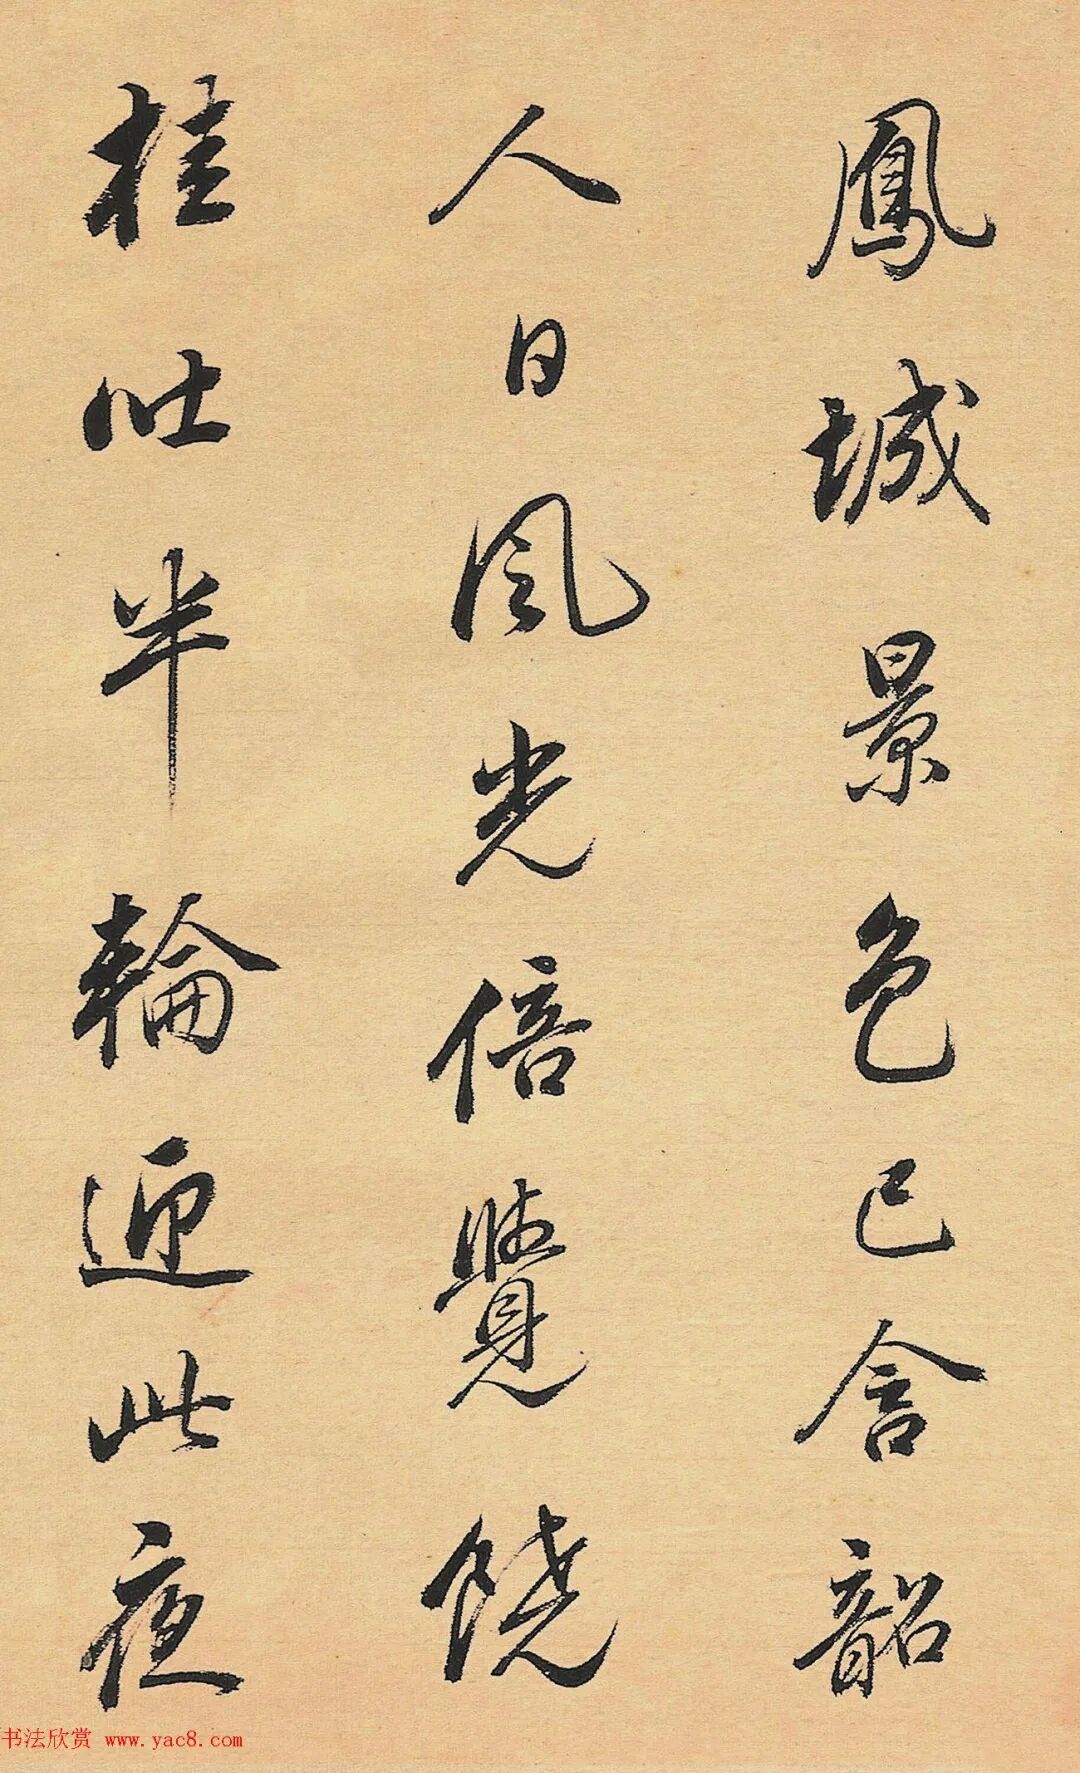 鳳城景色已含韶
人日風光倍覺饒
桂吐半輪迎此夜
书法欣赏 www.yac8.com